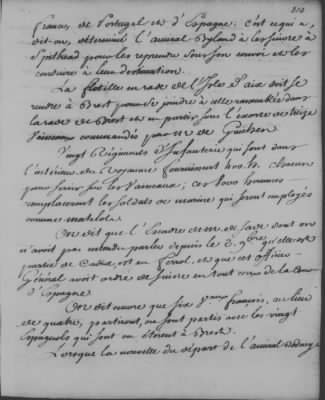 france, de Portugal et d'Espagne; c'est ce qui a,
dit-on, déterminé l'amiral Byland à les suivre à
Spithead pour les reprendre sous son convoi et les
conduire à leur destination.
La flotille en rade de l'Isle d'aix doit se
rendre à Brest pour se joindre à celle rassemblée dans
la rade de Brest et en partir sous l'escorte de treize
Vaisseaux commandés par mr de Guichen.
Vingt Régiments d'Infanterie qui sont dans
l'intérieur du Royaume fourniront 400. h. chacun
pour servir sur les Vaisseaux; ces 8000 hommes
remplaceront les soldats de marine qui seront employés
comme matelots.
On dit que l'Escadre de m. de dont on
n'avoit pas entendu parler depuis le 9bre qu'elle est
partie de Cadix, est au Ferol, et que cet officier
Général avoit ordre de suivre en tout ceux de la Cour
d'Espagne.
On dit encore que six Vaux françois, au lieu
de quatre, partiront, ou sont partis avec les vingt
Espagnols qui sont ou étoient à Brest.
Lorsque la nouvelle du départ de l'amiral Rodney